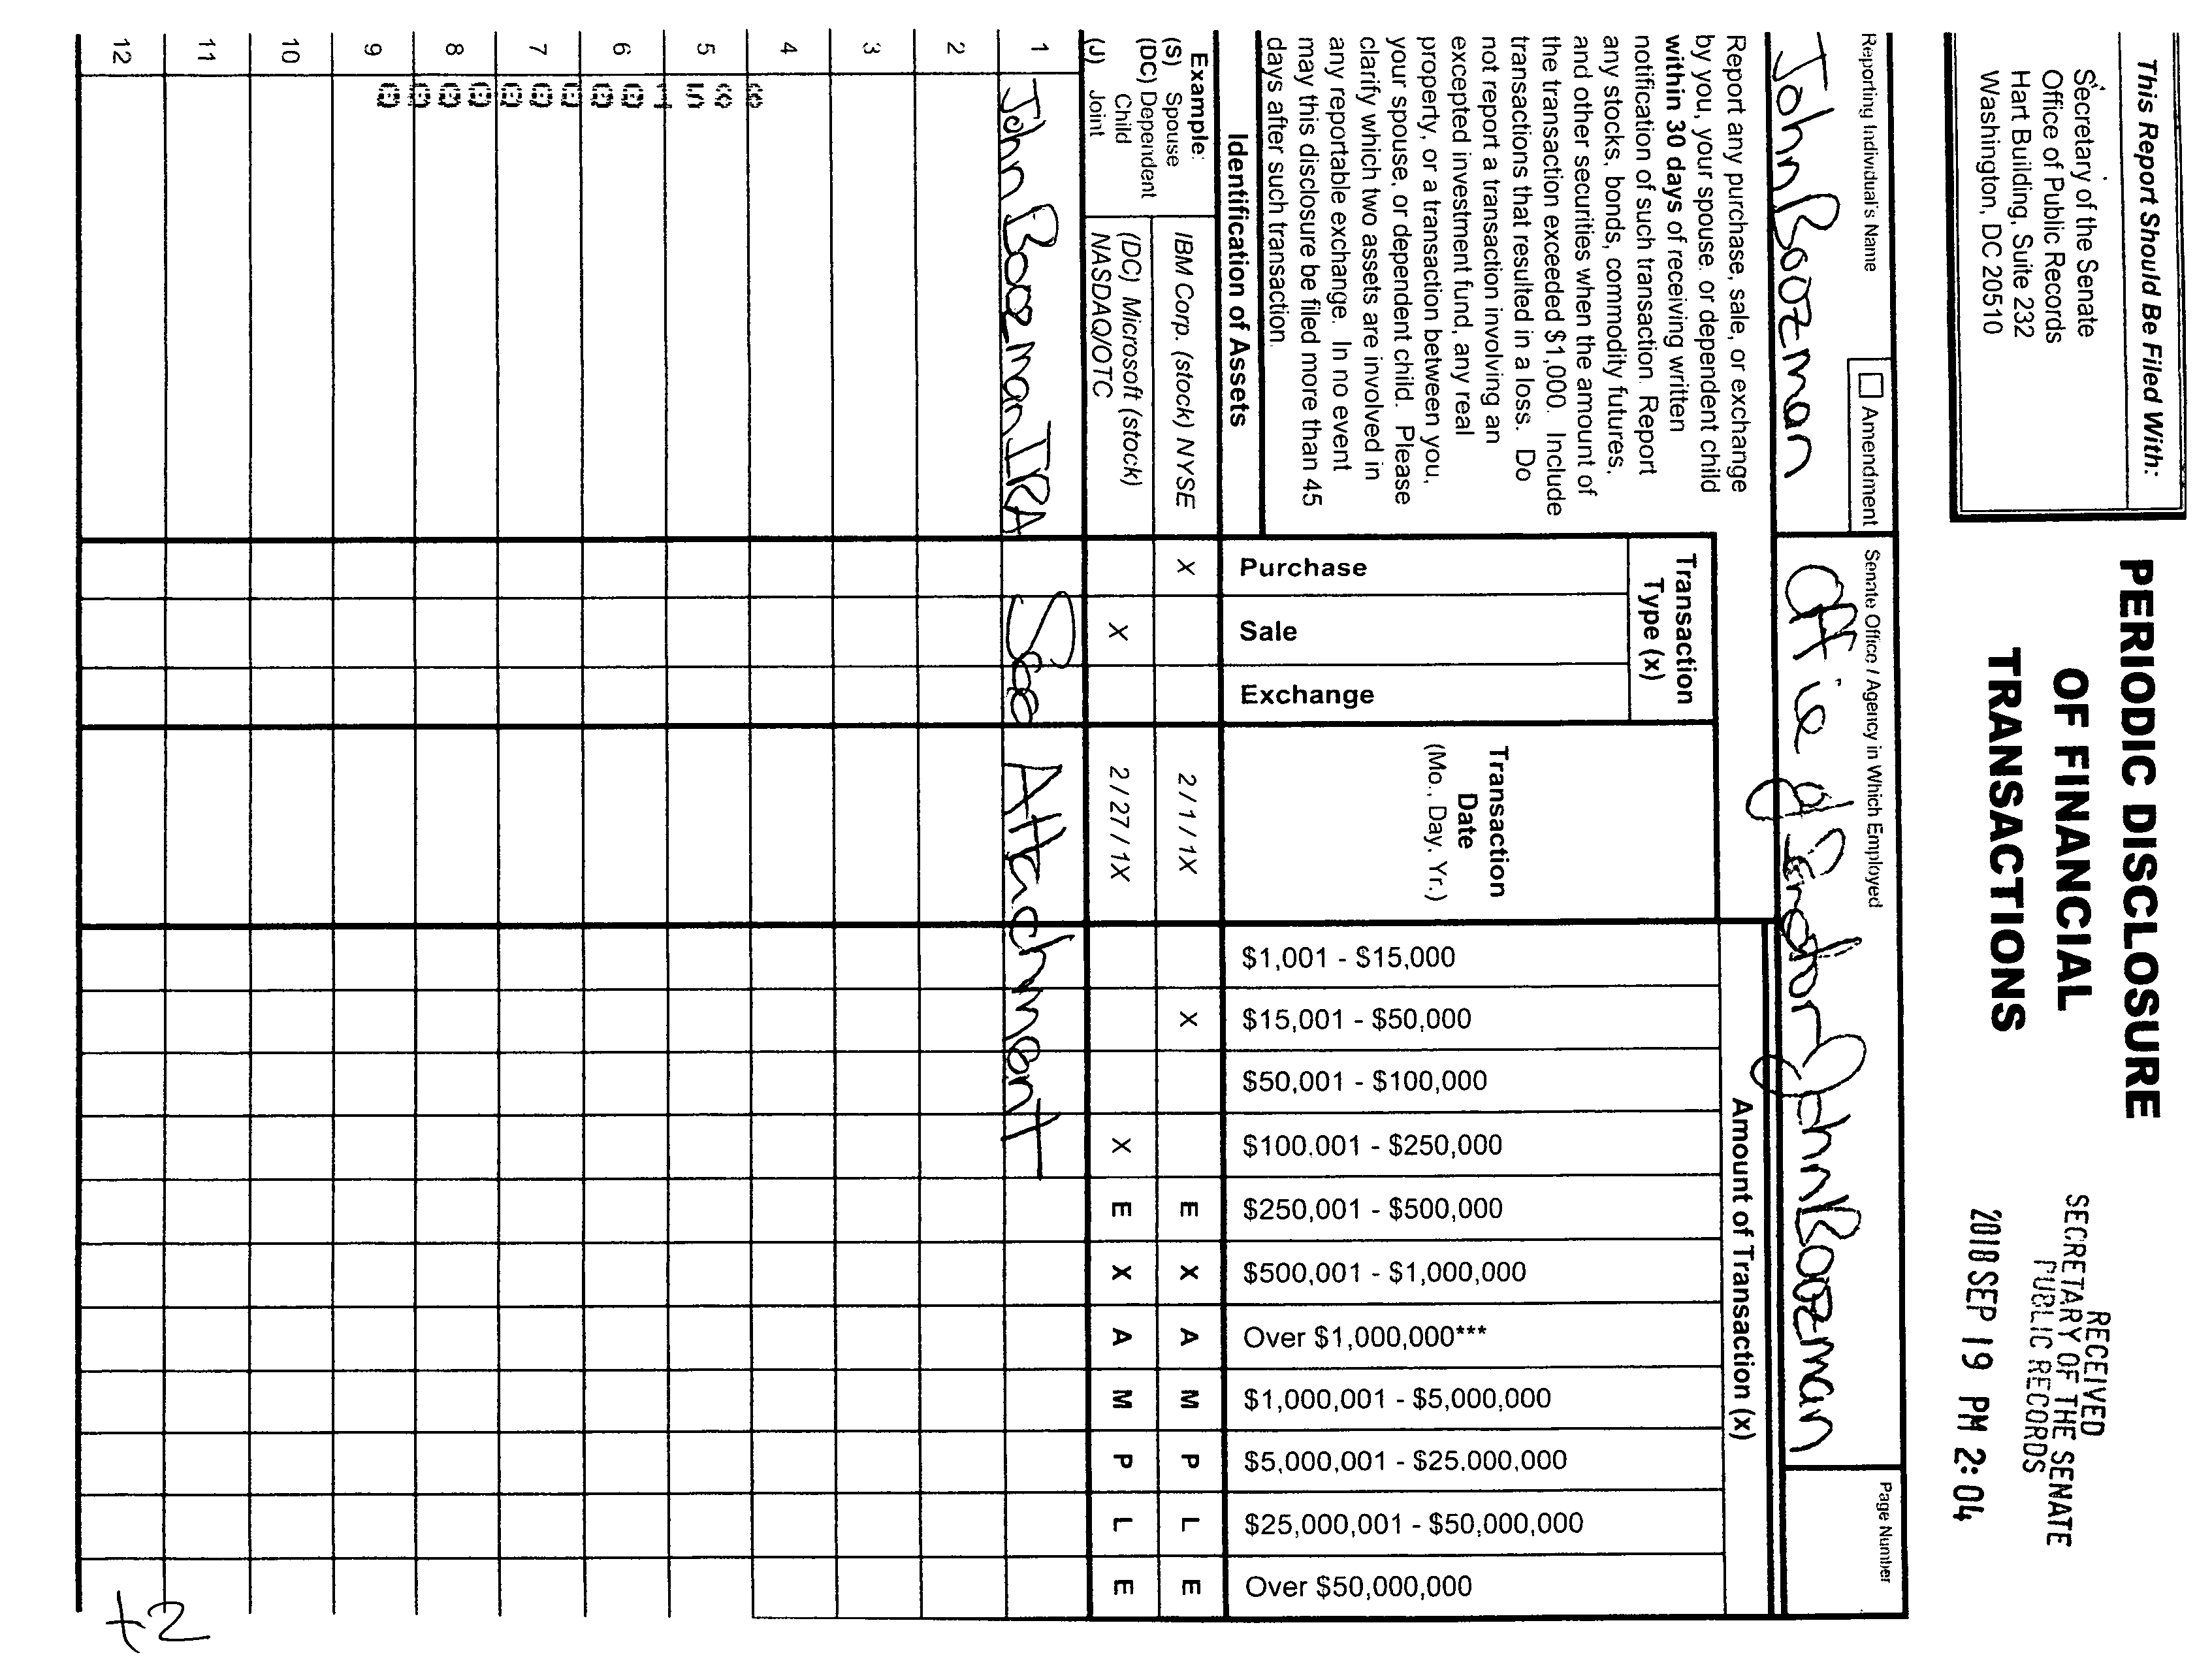 This Report Should Be Filed With:
Secretary of the Senate
Office of Public Records
Hart Building, Suite 232
Washington, DC 20510
PERIODIC DISCLOSURE
OF FINANCIAL
TRANSACTIONS
RECEIVED
SECRETARY OF THE SENATE
PUBLIC RECORDS
2018 SEP 19 PM 2:04
Reporting Individual's Name
John Boozman
Amendment
Senate Office / Agency in Which Employed
Office of Senator John Boozman
Page Number
Report any purchase, sale, or exchange
by you, your spouse, or dependent child
within 30 days of receiving written
notification of such transaction. Report
any stocks, bonds, commodity futures,
and other securities when the amount of
the transaction exceeded $1,000. Include
transactions that resulted in a loss. Do
not report a transaction involving an
excepted investment fund, any real
property, or a transaction between you,
your spouse, or dependent child. Please
clarify which two assets are involved in
any reportable exchange. In no event
may this disclosure be filed more than 45
days after such transaction.
Identification of Assets
Transaction
Type (x)
Purchase
Sale
Exchange
Transaction
Date
(Mo., Day, Yr.)
Amount of Transaction (x)
$1,001 - $15,000
$15,001 - $50,000
$50,001 - $100,000
$100,001 - $250,000
$250,001 - $500,000
$500,001 - $1,000,000
Over $1,000,000***
$1,000,001 - $5,000,000
$5,000,001 - $25,000,000
$25,000,001 - $50,000,000
Over $50,000,000
Example:
(S) Spouse
(DC) Dependent
Child
(J) Joint
IBM Corp. (stock) NYSE X 2/1/1X X E X A M P L E
(DC) Microsoft (stock)
NASDAQ/OTC X 2/27/1X X E X A M P L E
1 John Boozman IRA See Attachment
2
3
4
5
6
7
8
9
10
11
12
+2